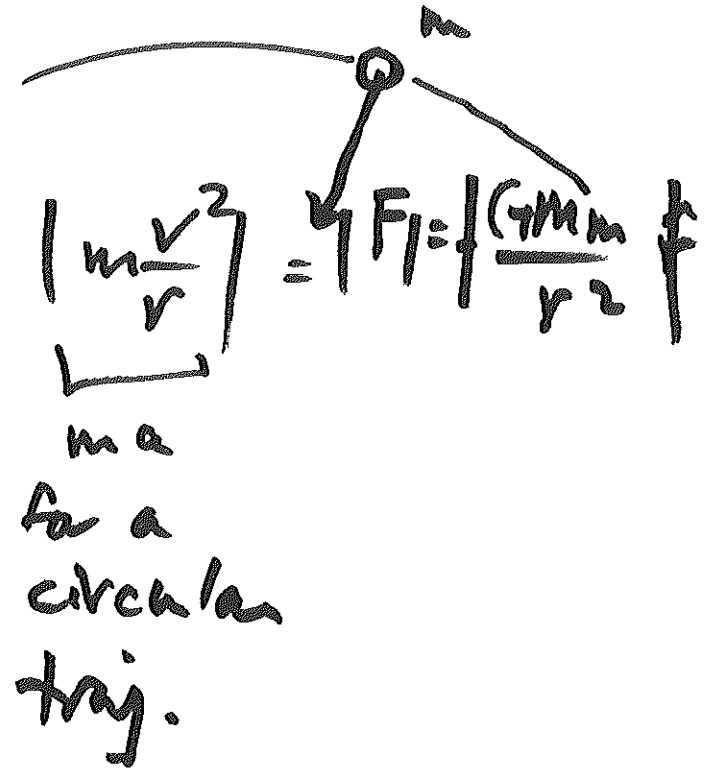 m
|m v²/r| = |F| = |GMm/r²|
ma
for a
circular
traj.